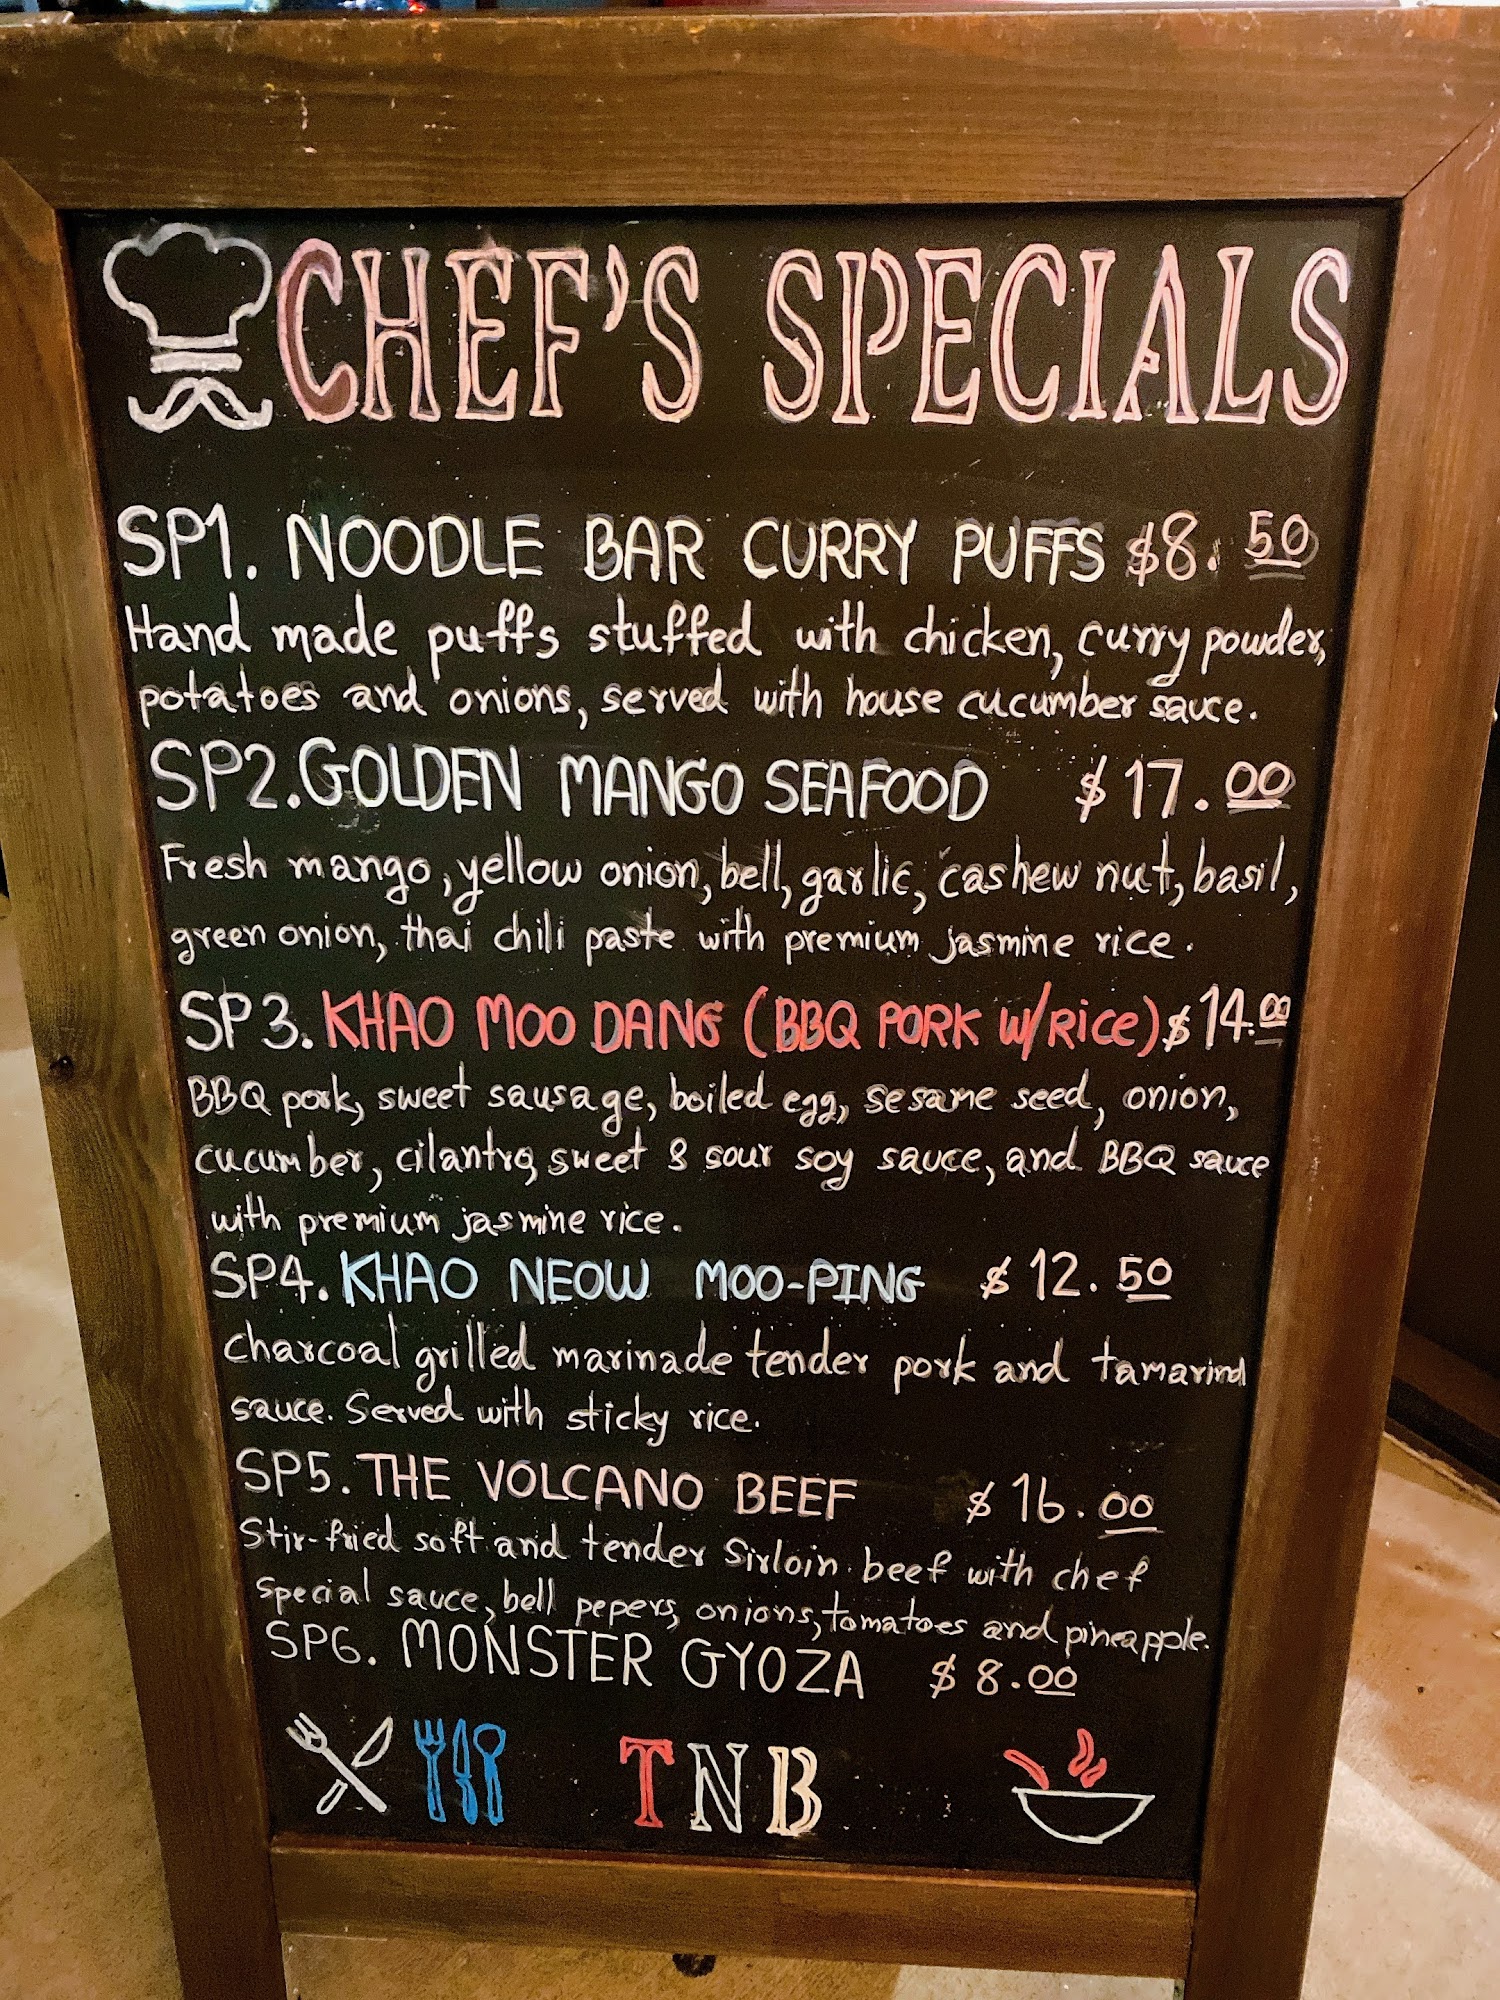 CHEF'S SPECIALS
SP1. NOODLE BAR CURRY PUFFS $8.50
Hand made puffs stuffed with chicken, curry powder,
potatoes and onions, served with house cucumber sauce.
SP2. GOLDEN MANGO SEAFOOD $17.00
Fresh mango, yellow onion, bell, garlic, cashew nut, basil,
green onion, thai chili paste with premium jasmine rice.
SP3. KHAO MOO DANG (BBQ PORK W/RICE) $14.00
BBQ pork, sweet sausage, boiled egg, sesame seed, onion,
cucumber, cilantro, sweet & sour soy sauce, and BBQ sauce
with premium jasmine rice.
SP4. KHAO NEOW MOO-PING $12.50
charcoal grilled marinade tender pork and tamarind
sauce. Served with sticky rice.
SP5. THE VOLCANO BEEF $16.00
Stir-fried soft and tender Sirloin beef with chef
special sauce, bell pepers, onions, tomatoes and pineapple.
SP6. MONSTER GYOZA $8.00
TNB